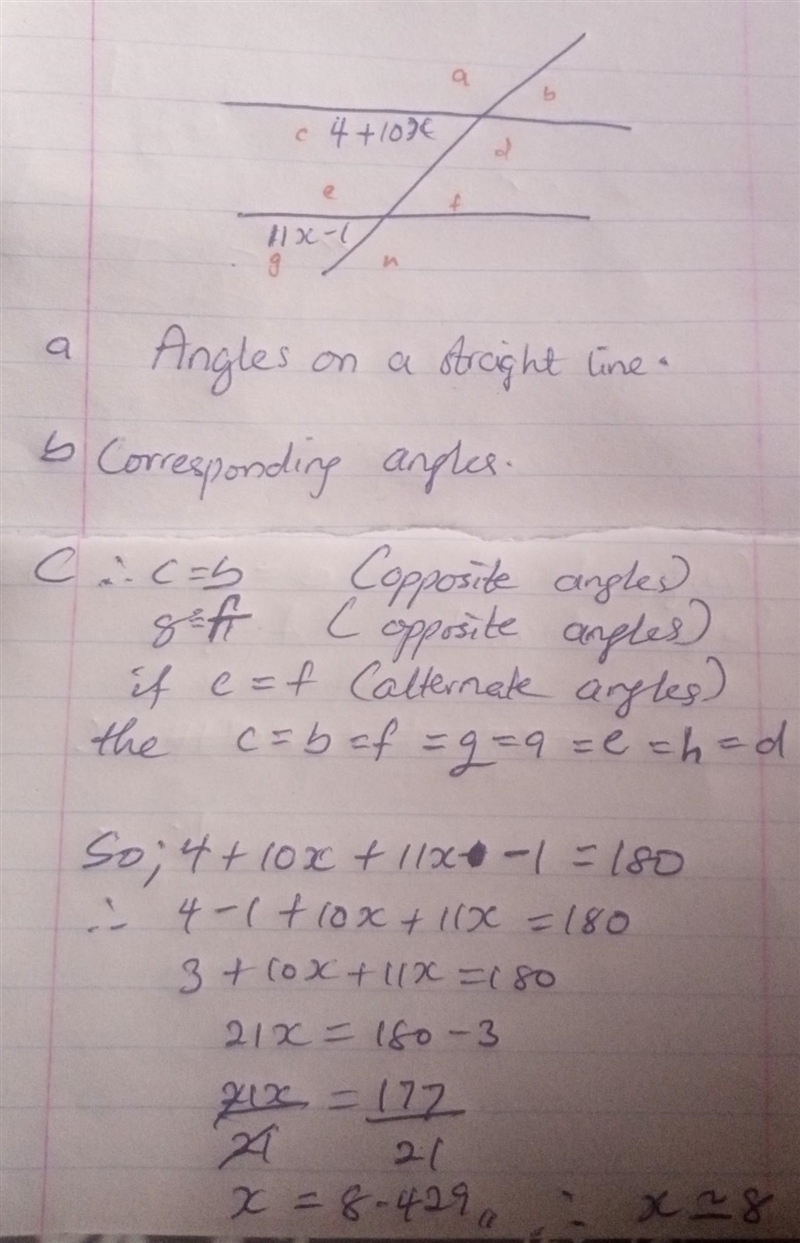 a
b
c 4+10x
d
e
f
11x-1
g
n
a Angles on a straight line.
b Corresponding angles.
C ∴ c=b (opposite angles)
g=f (opposite angles)
if c=f (alternate angles)
the c=b=f=g=a=e=h=d
So; 4+10x+11x-1=180
∴ 4-1+10x+11x=180
3+10x+11x=180
21x=180-3
21x/21=177/21
x=8.429,, ∴ x≃8